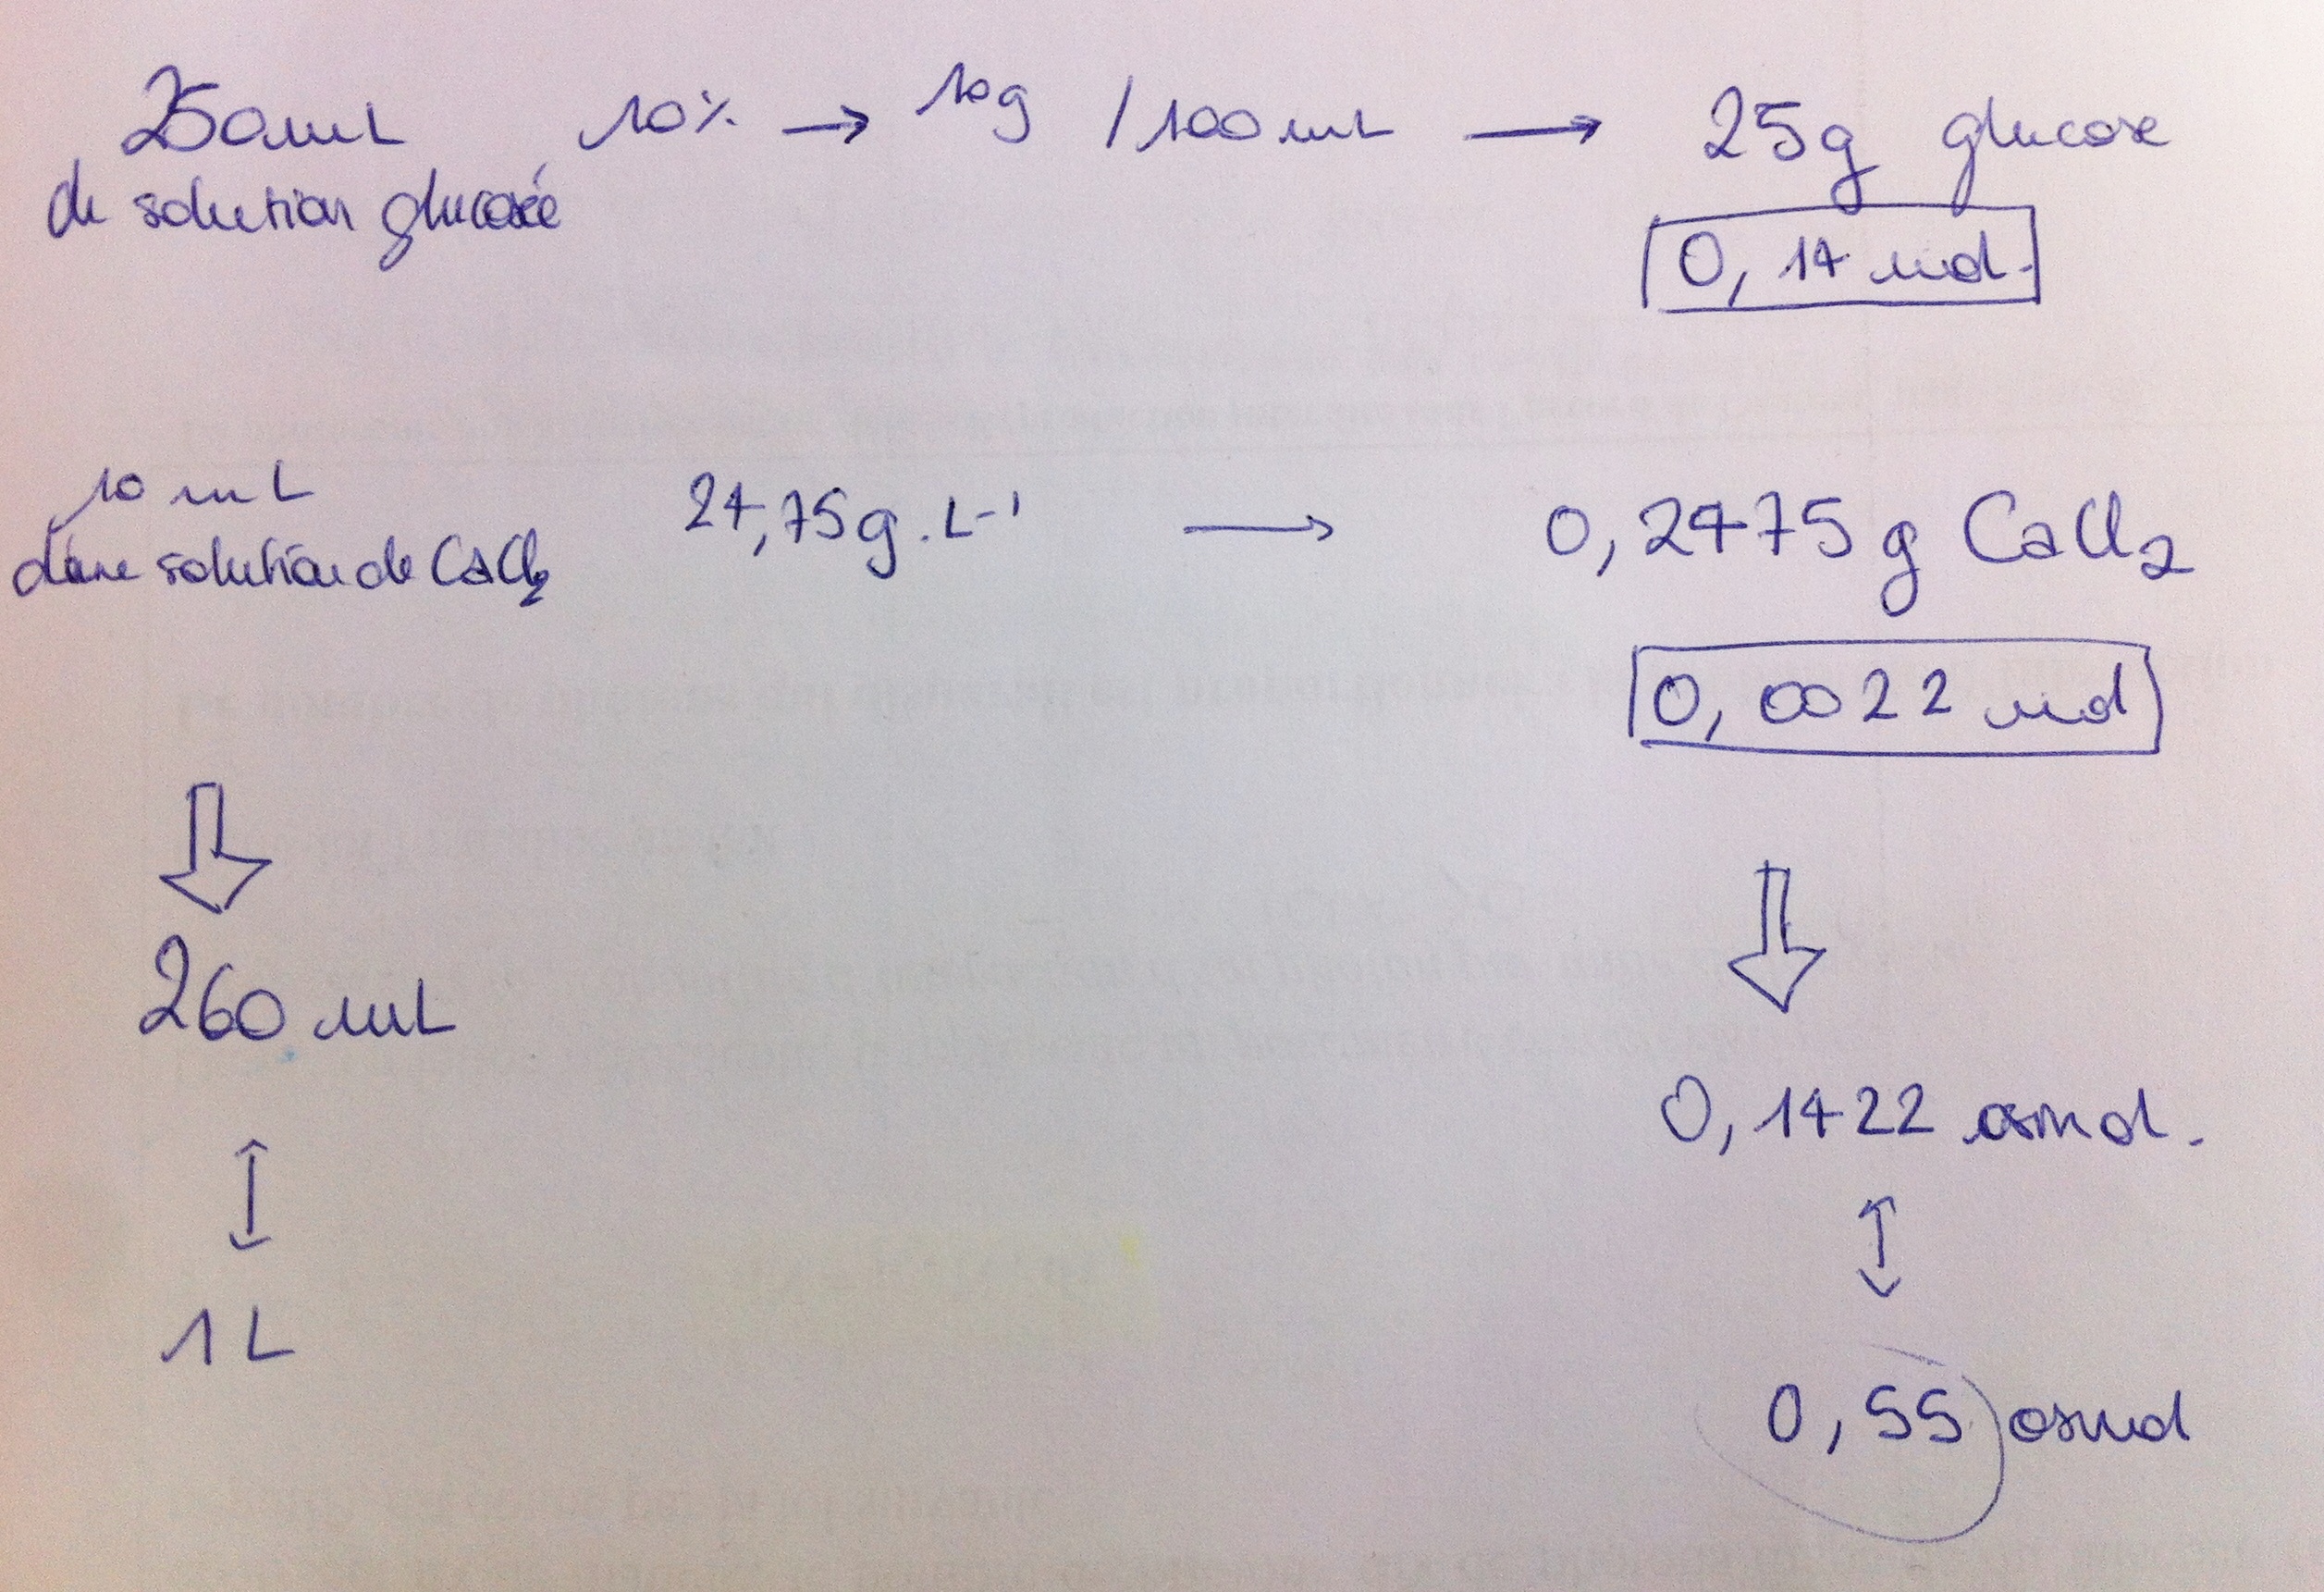 250 mL 10% → 10g / 100 mL → 25g glucose
de solution glucosée
0,14 mol.
10 mL 24,75 g.L-1 → 0,2475 g CaCl2
d'une solution de CaCl2
0,0022 mol
260 mL
0,1422 osmol.
1 L
0,55 osmol